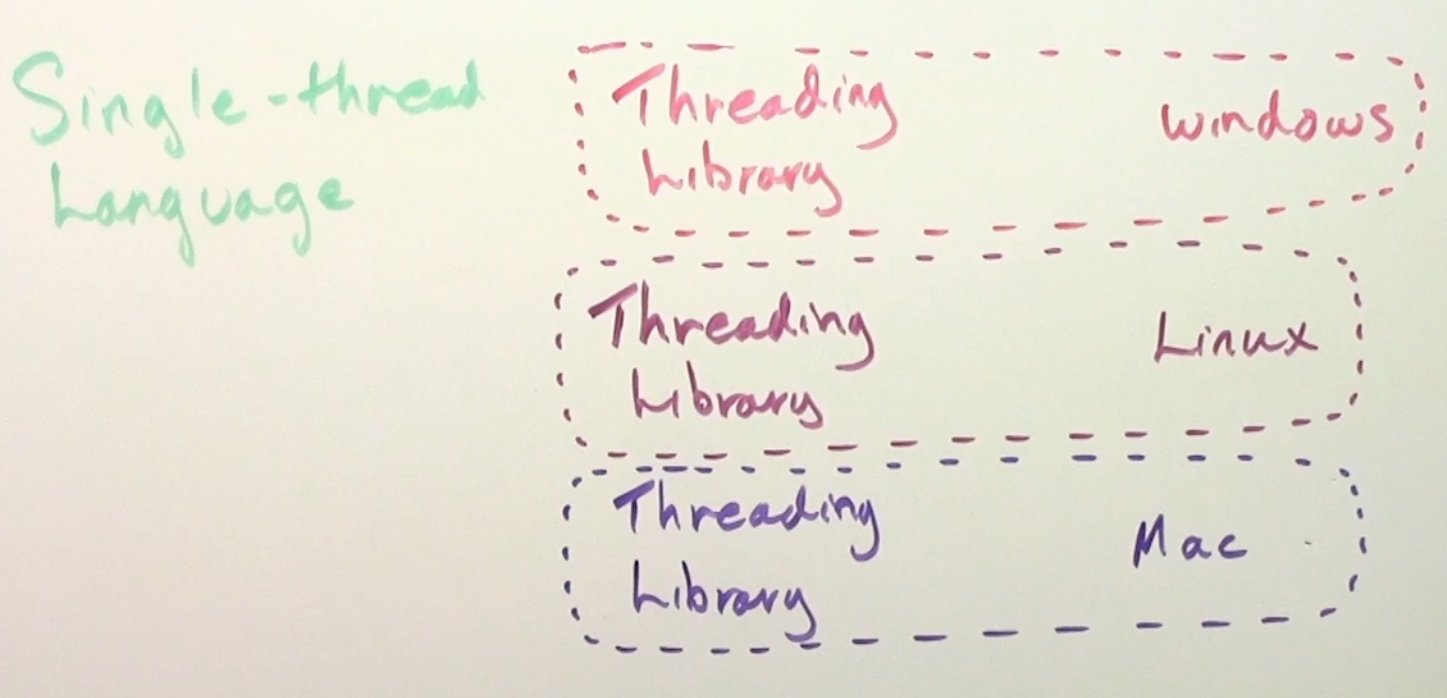 Single-thread
Language
Threading
Library
Windows
Threading
Library
Linux
Threading
Library
Mac